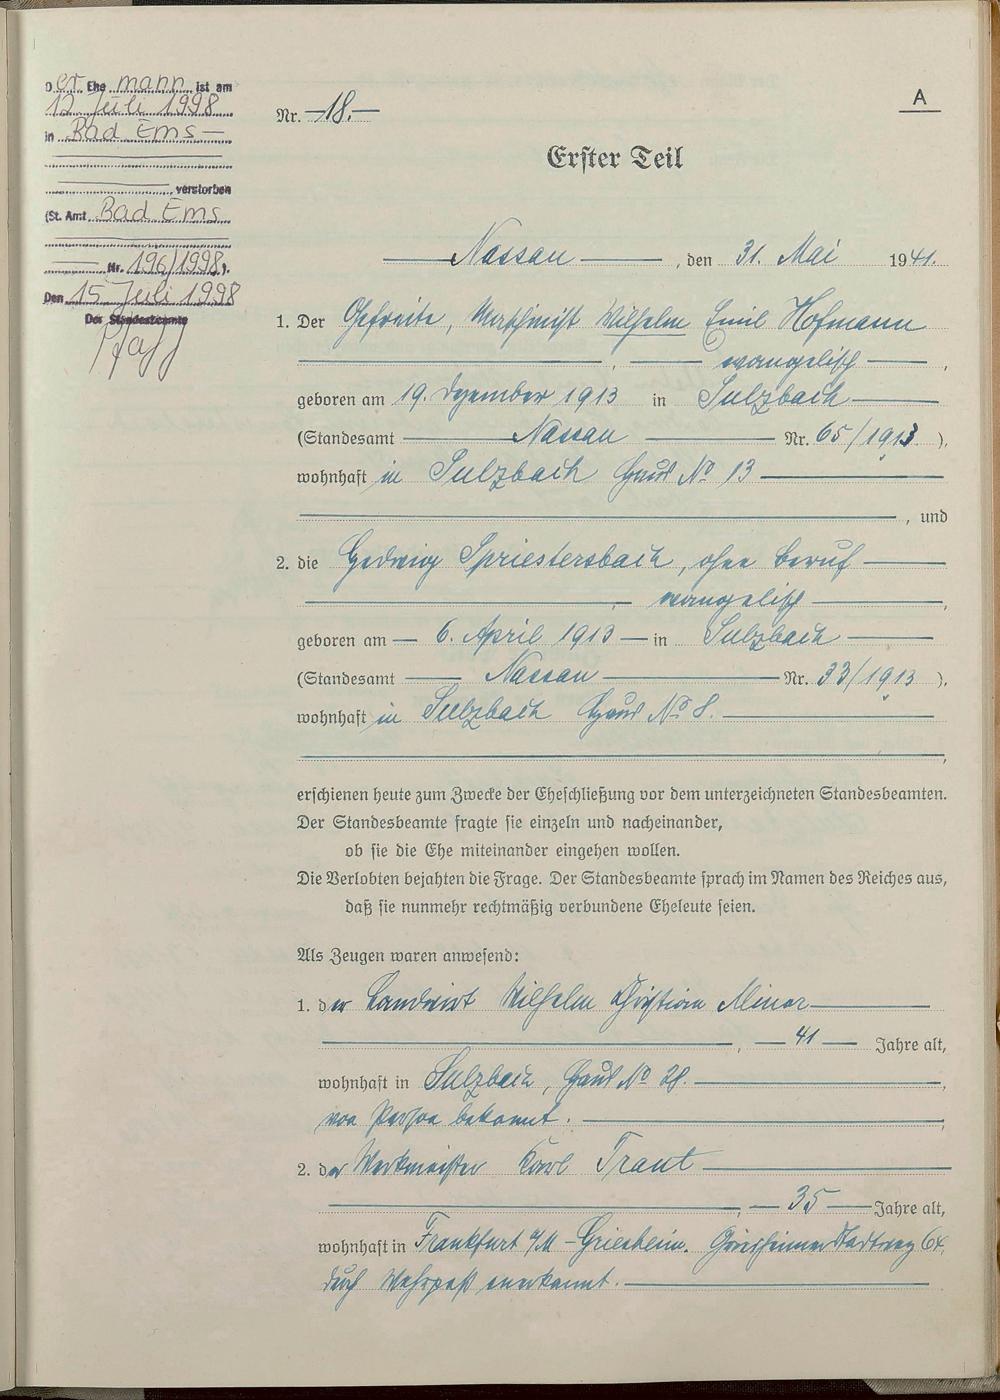 Der Ehe mann ist am
12. Juli 1998
in Bad Ems
verstorben
(St. Amt Bad Ems
Nr. 196/1998).
Den 15. Juli 1998
Der Standesbeamte
A
Nr. 18.
Erster Teil
Nassau, den 31. Mai 1941.
1. Der Gefreite, Wilhelm Emil Hofmann
evangelisch,
geboren am 19. Dezember 1913 in Sulzbach
(Standesamt Nassau Nr. 65/1913),
wohnhaft in Sulzbach Haus No 13
, und
2. die Hedwig Spriestersbach, ohne Beruf
evangelisch,
geboren am 6. April 1913 in Sulzbach
(Standesamt Nassau Nr. 33/1913),
wohnhaft in Sulzbach Haus No 8.
erschienen heute zum Zwecke der Eheschließung vor dem unterzeichneten Standesbeamten.
Der Standesbeamte fragte sie einzeln und nacheinander,
ob sie die Ehe miteinander eingehen wollen.
Die Verlobten bejahten die Frage. Der Standesbeamte sprach im Namen des Reiches aus,
daß sie nunmehr rechtmäßig verbundene Eheleute seien.
Als Zeugen waren anwesend:
1. der Landwirt Wilhelm Christian Minor
, 41 Jahre alt,
wohnhaft in Sulzbach, Haus No 28.
von Person bekannt.
2. der Werkmeister Karl Traut
, 35 Jahre alt,
wohnhaft in Frankfurt a/M - Griesheim. Griesheimer Stadtweg 64,
durch Wehrpaß anerkannt.